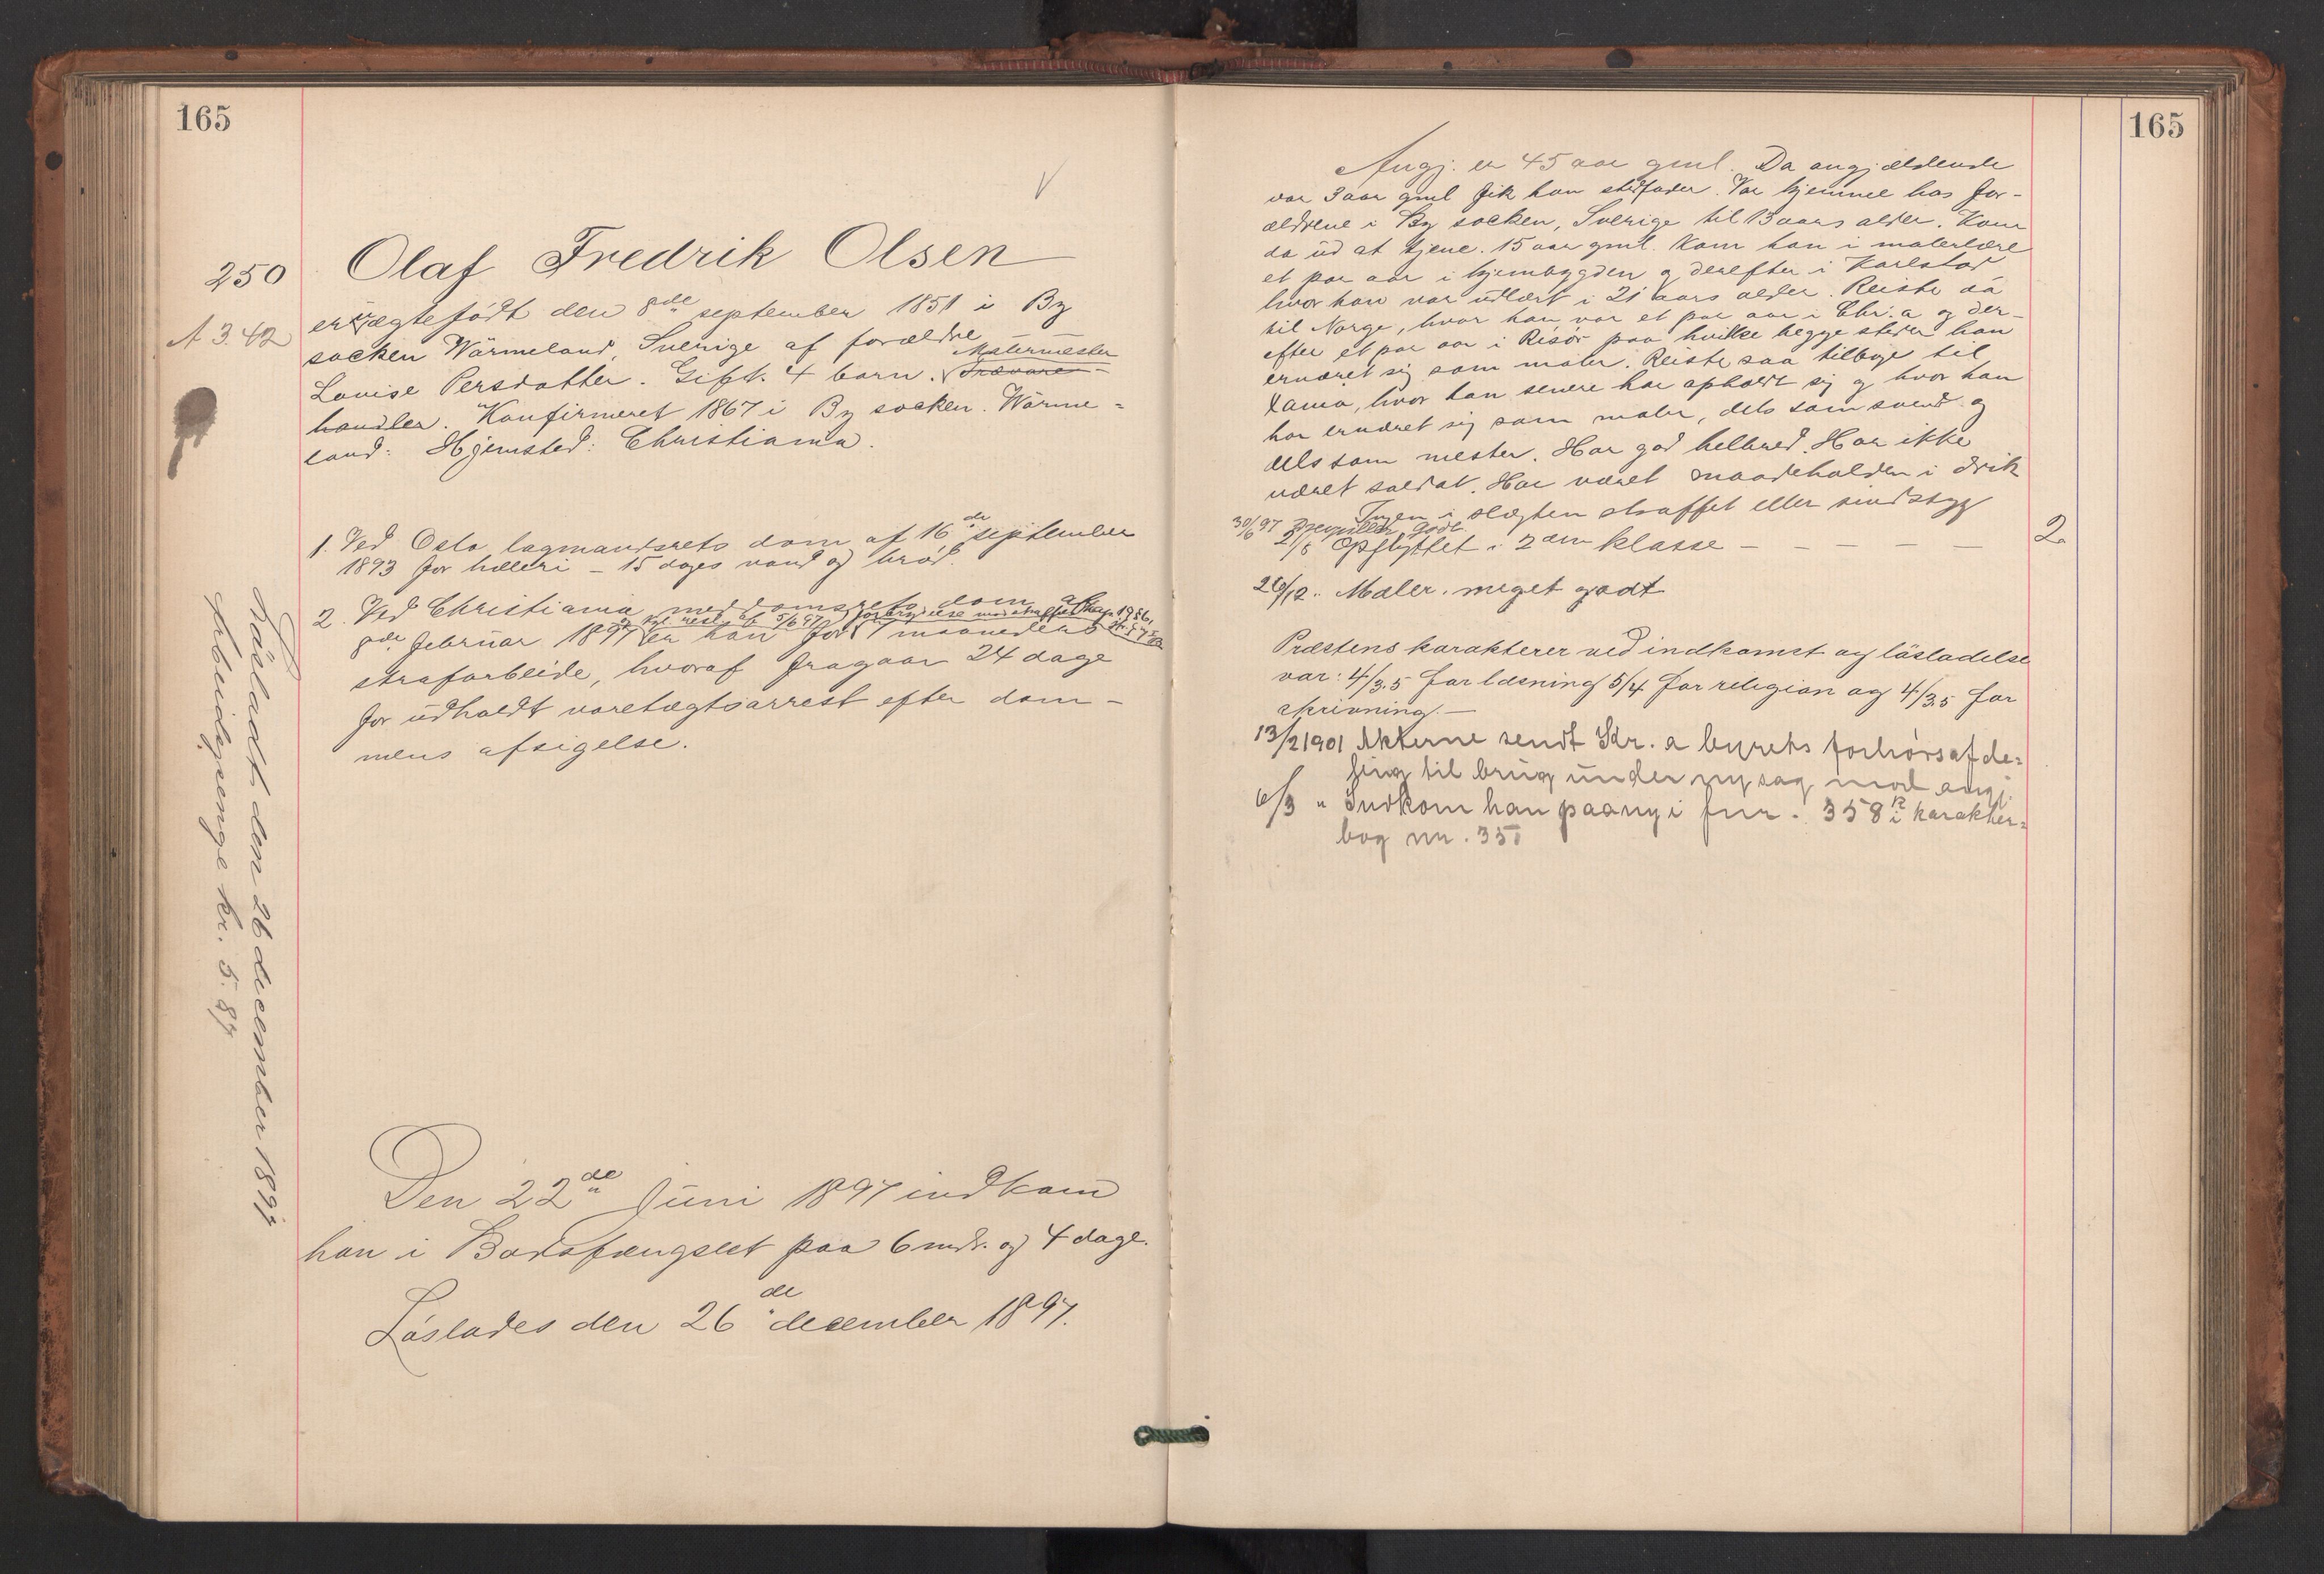 165
250
A 3.42
Olaf Fredrik Olsen
er uægte født den 8de september 1851 i By
socken Wärmeland, Sverige af forældre
Louise Persdatter. Gift. 4 barn. Malermester Trævare-
handler. Konfirmeret 1867 i By socken. Wärme=
land. Hjemsted: Christiania.
1. Ved Oslo lagmandsrets dom af 16de september
1893 for hæleri – 15 dages vand og brød.
2. Ved Christiania meddomsrets dom af
8de februar 1897 er han for forbrydelse mod 7 maaneders
strafarbeide, hvoraf fragaar 24 dage
for udholdt varetægtsarrest efter dom-
mens afsigelse.
Løsladt den 26 december 1897
Arbeidspenge kr. 5.87
Den 22de Juni 1897 indkom
han i Bodsfængslet paa 6 mdr. og 4 dage.
Løslades den 26de december 1897.
165
Angj. er 45 aar gml. Da angjældende
var 3 aar gml fik han stedfader. Var hjemme hos for-
ældrene i By socken, Sverige til 13 aars alder. Kom
da ud at tjene. 15 aar gml. kom han i malerlære
et par aar i hjembygden og derefter i Karlstad
hvor han var udlært i 21 aars alder. Reiste da
til Norge, hvor han var et par aar i Chr.a og der-
efter et par aar i Risør paa hvilke begge steder han
ernæret sig som maler. Reiste saa tilbage til
X.ania, hvor han senere har opholdt sig og hvor han
har ernæret sig som maler, dels som svend og
dels som mester. Har god helbred. Har ikke
været soldat. Har været maadeholden i drik
Ingen i slægten straffet eller sindssyg
30/6 97 godt.
2/8 Opflyttet i 2den klasse – – – – – 2.
26/12. Maler. meget godt
Præstens karakterer ved indkomst og løsladelse
var: 4/3.5 for læsning 5/4 for religion og 4/3.5 for
skrivning.—
13/2 1901 Akterne sendt Kr.a byrets forhørsafde=
ling til brug under ny sag mod angj.
6/3 " Indkom han paany i fnr. 358 i karakter=
bog nr. 35